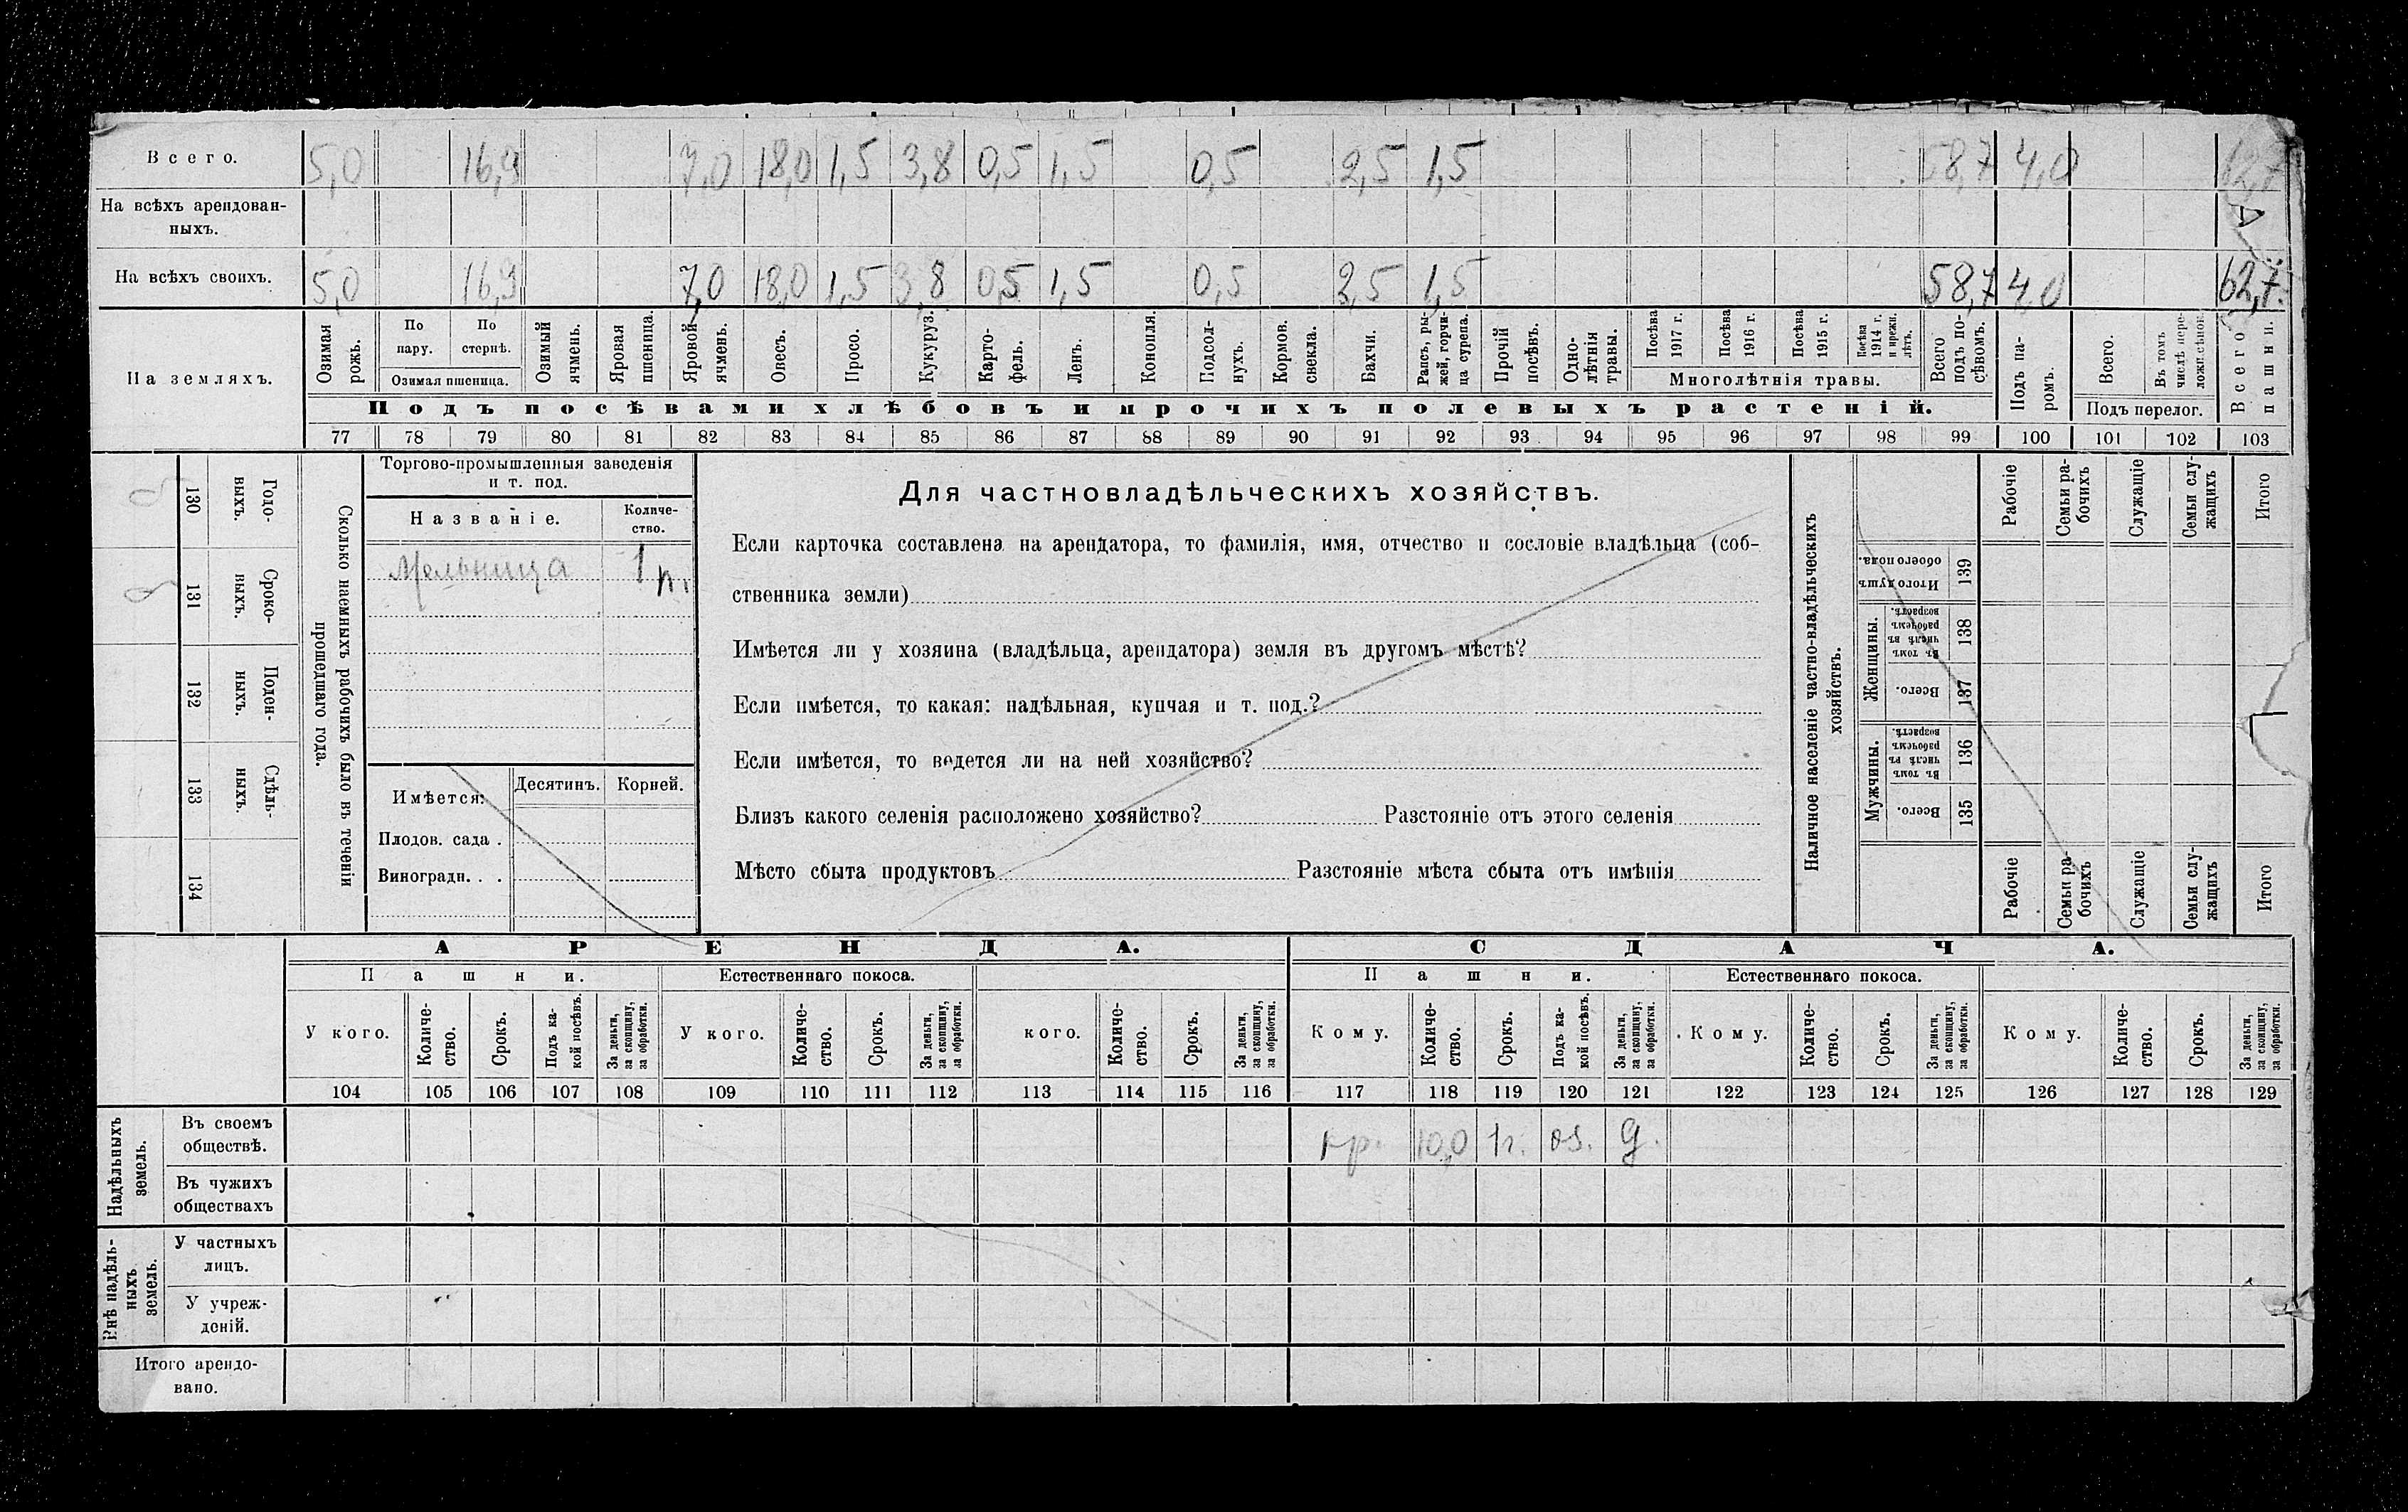 Всего. 5,0 16,9 7,0 18,0 1,5 3,8 0,5 1,5 0,5 2,5 1,5 58,7 4,0 62,7
На всѣхъ арендован-
ныхъ.
На всѣхъ своихъ. 5,0 16,9 7,0 18,0 1,5 3,8 0,5 1,5 0,5 2,5 1,5 58,7 4,0 62,7
На земляхъ.
Озимая рожь.
По пару.
По стернѣ.
Озимая пшеница.
Озимый ячмень.
Яровая пшеница.
Яровой ячмень.
Овесъ.
Просо.
Кукуруз.
Карто-
фель.
Ленъ.
Конопля.
Подсол-
нухъ.
Кормов. свекла.
Бахчи.
Рапсъ, ры-
жей, горчи-
ца сурепа.
Прочій посѣвъ.
Одно-
лѣтнія травы.
Посѣва 1917 г.
Посѣва 1916 г.
Посѣва 1915 г.
Посѣва 1914 г. и прежн. лѣтъ.
Многолѣтнія травы.
Всего подъ по-
сѣвомъ.
Подъ посѣвами хлѣбовъ и прочихъ полевыхъ растеній.
Подъ па-
ромъ.
Всего.
Въ томъ числѣ пере-
ложн. сѣнок.
Подъ перелог.
Всего пашни.
77 78 79 80 81 82 83 84 85 86 87 88 89 90 91 92 93 94 95 96 97 98 99 100 101 102 103
Годо-
выхъ.
130
Сроко-
выхъ.
131
Поден-
ныхъ.
132
Сдѣль-
ныхъ.
133
134
Сколько наемныхъ рабочихъ было въ теченіи
прошедшаго года.
Торгово-промышленныя заведенія
и т. под.
Названіе.
Количе-
ство.
Мельница 1 р.
Имѣется:
Десятинъ.
Корней.
Плодов. сада .
Виноградн. . .
Для частновладѣльческихъ хозяйствъ.
Если карточка составлена на арендатора, то фамилія, имя, отчество и сословіе владѣльца (соб-
ственника земли)
Имѣется ли у хозяина (владѣльца, арендатора) земля въ другомъ мѣстѣ?
Если имѣется, то какая: надѣльная, купчая и т. под.?
Если имѣется, то ведется ли на ней хозяйство?
Близъ какого селенія расположено хозяйство? Разстояніе отъ этого селенія
Мѣсто сбыта продуктовъ Разстояніе мѣста сбыта отъ имѣнія
Наличное населеніе частно-владѣльческихъ
хозяйствъ.
Рабочіе
Семьи ра-
бочихъ
Служащіе
Семьи слу-
жащихъ
Итого
Итого душъ обоего пола.
139
Женщины.
Въ томъ числѣ въ рабочемъ возрастѣ.
138
Всего.
137
Мужчины.
Въ томъ числѣ въ рабочемъ возрастѣ.
136
Всего.
135
Рабочіе
Семьи ра-
бочихъ
Служащіе
Семьи слу-
жащихъ
Итого
АРЕНДА. СДАЧА.
Пашни. Естественнаго покоса. Пашни. Естественнаго покоса.
У кого.
Количе-
ство.
Срокъ.
Подъ ка-
кой посѣвъ.
За деньги,
за скопщину,
за обработки.
У кого.
Количе-
ство.
Срокъ.
За деньги,
за скопщину,
за обработки.
кого.
Количе-
ство.
Срокъ.
За деньги,
за скопщину,
за обработки.
Кому.
Количе-
ство.
Срокъ.
Подъ ка-
кой посѣвъ.
За деньги,
за скопщину,
за обработки.
Кому.
Количе-
ство.
Срокъ.
За деньги,
за скопщину,
за обработки.
Кому.
Количе-
ство.
Срокъ.
За деньги,
за скопщину,
за обработки.
104 105 106 107 108 109 110 111 112 113 114 115 116 117 118 119 120 121 122 123 124 125 126 127 128 129
Надѣльныхъ
земель.
Въ своемъ
обществѣ.
кр. 10,0 1г. оз. д.
Въ чужихъ
обществахъ
Внѣ надѣль-
ныхъ
земель.
У частныхъ
лицъ.
У учреж-
деній.
Итого арендо-
вано.